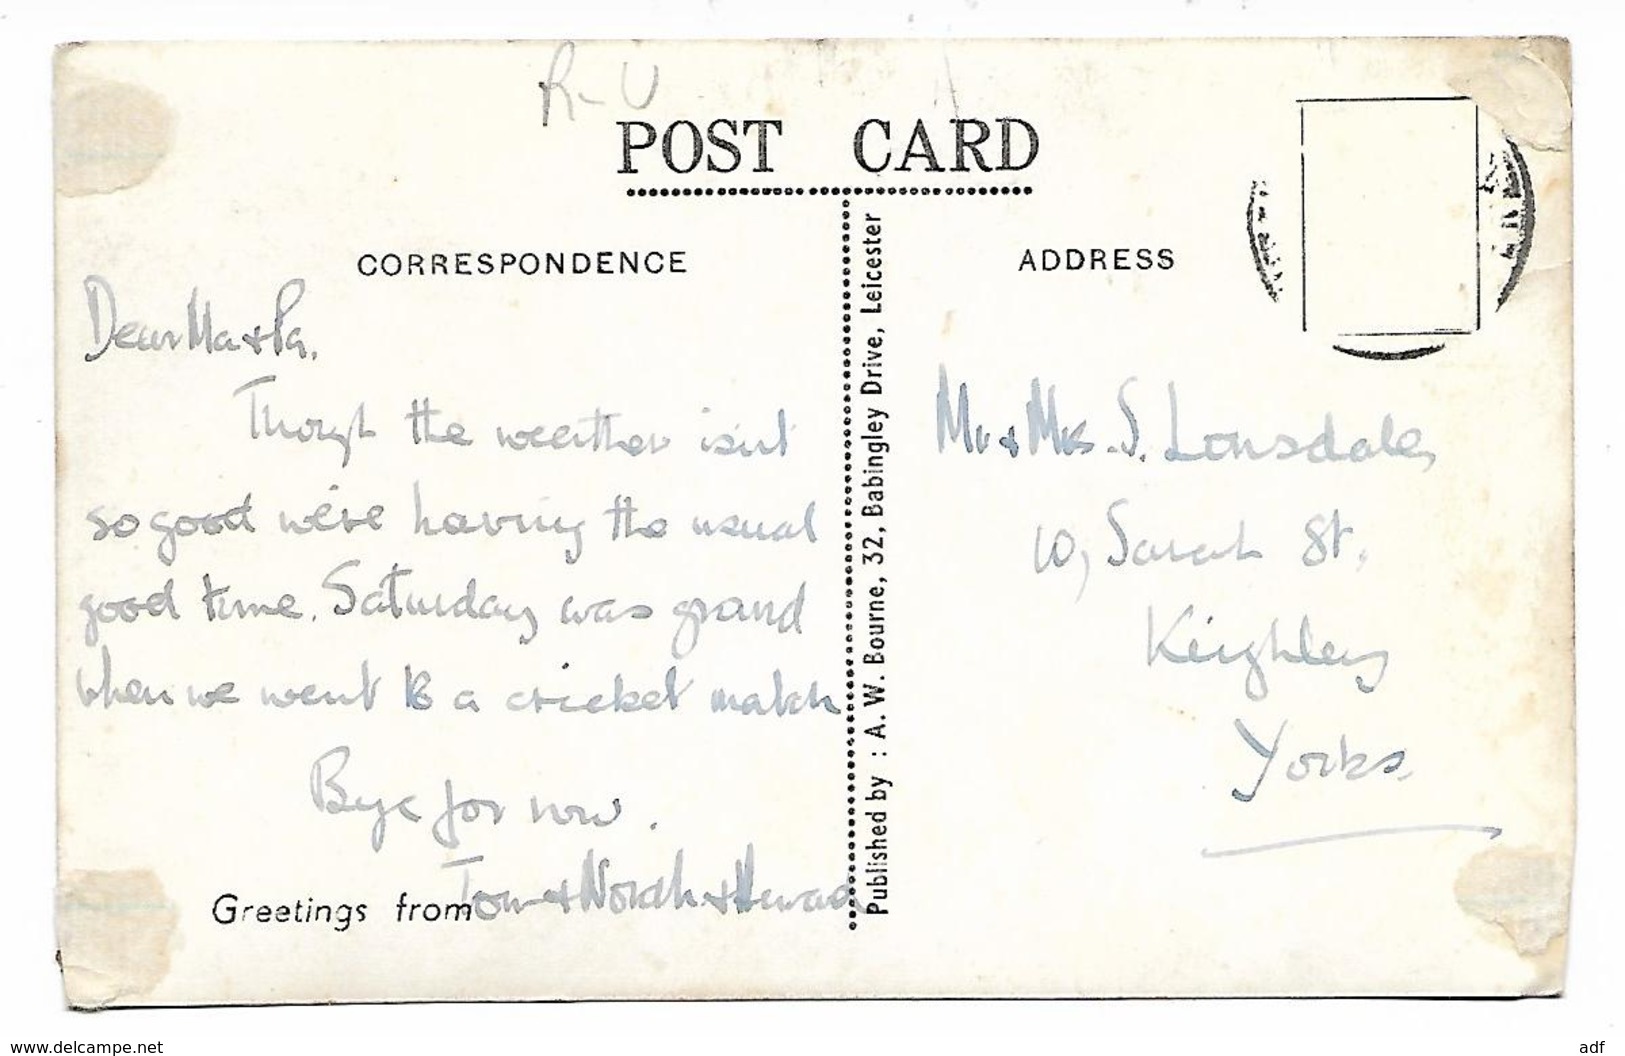 R-U
POST CARD
CORRESPONDENCE
Dear Ma & Pa.
Though the weather isn't
so good we're having the usual
good time. Saturday was grand
when we went to a cricket match
Bye for now.
Greetings from Tom & Norah &
Published by : A. W. Bourne, 32, Babingley Drive, Leicester
ADDRESS
Mr & Mrs. S. Lonsdale,
10, Sarah St.
Keighley
Yorks.
www.delcampe.net
adf